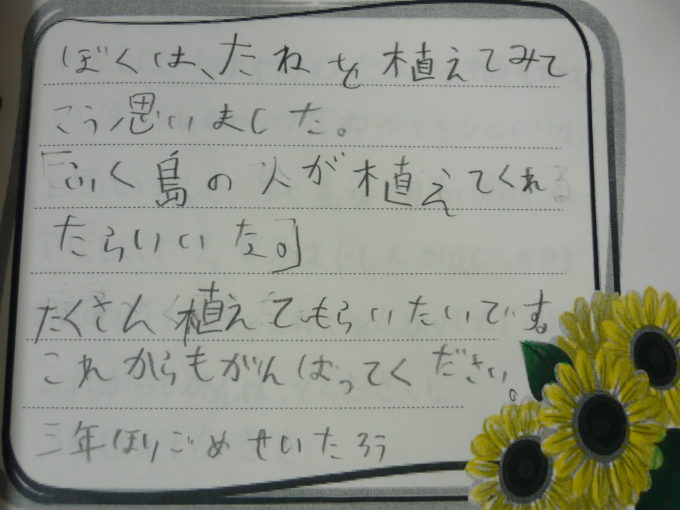 ぼくは、たねを植えてみて
こう思いました。
「ふく島の人が植えてくれ
たらいいな。」
たくさん植えてもらいたいです。
これからもがんばってください。
三年ほりごめせいたろう